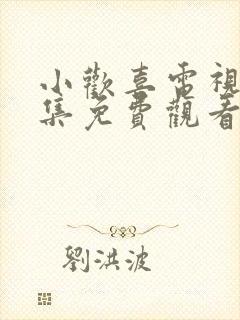 小歡喜電視
集免費觀看
劉洪波